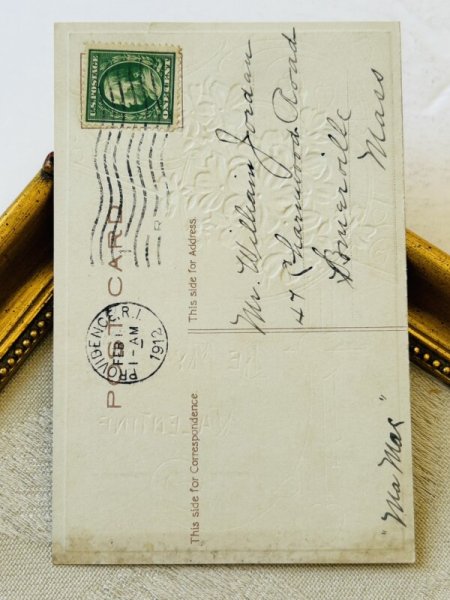 U.S. POSTAGE
ONE CENT
POST CARD
PROVIDENCE, R.I.
FEB
1-AM
1912
This side for Correspondence
This side for Address
Mr. William Jordan
47 Charnwood Road
Somerville
Mass
"Ma Mac"